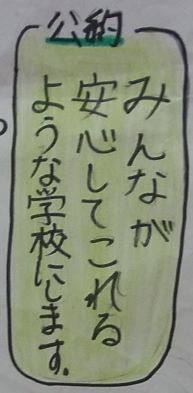 公約
みんなが
安心してこれる
ような学校にします。